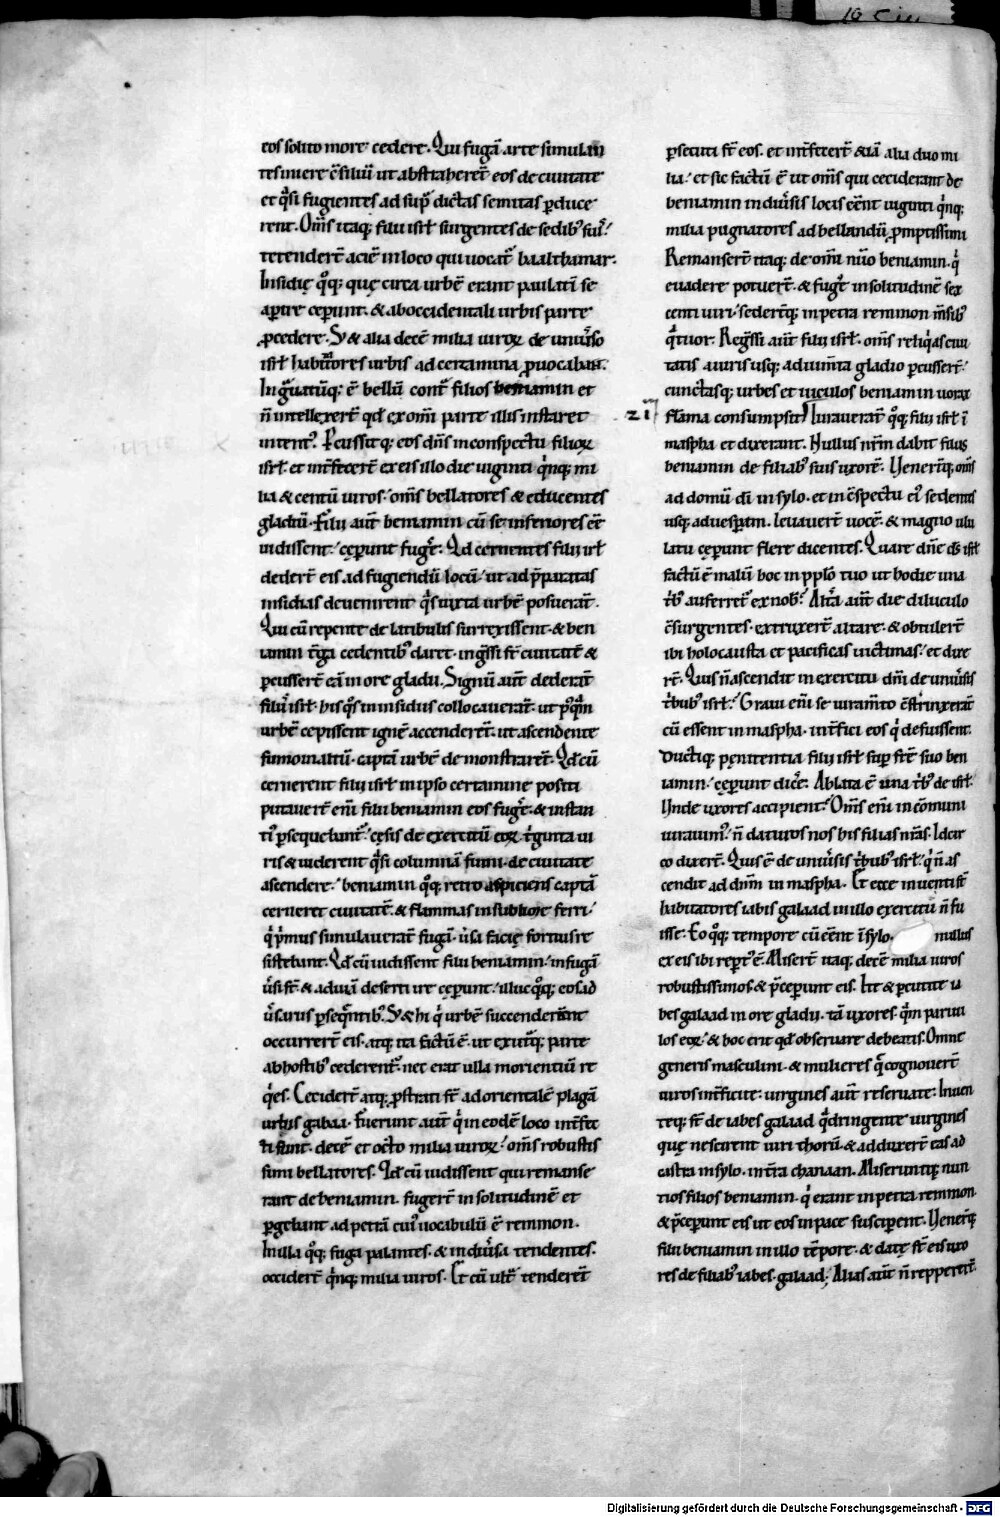 eos solito more cedere. Qui fugā arte simulan
tes iniere c̄siliū ut abstraherēt eos de ciuitate
et q̄si fugientes ad sup̄ dictas semitas ꝑduce
rent. Om̄s itaq; filii isrł surgentes de sedib; suis.
tetenderē aciē in loco qui uocat̄ baalthamar.
Insidię q̊q; quę circa urbē erant paulatī se
apire ceperunt. & ab occidentali urbis parte
ꝓcedere. S; & alia decē milia uiroꝝ de uniu̾so
isrł habitatores urbis ad certamina ꝓuocabāt.
Ingͣuatūq; ē bellū contͣ filios beniamin et
n̄ intellexerē qd̄ ex om̄i parte illis instaret
interit̾. Percussitq; eos dn̄s in conspectu filioꝝ
isrł. et int̾fecerē ex eis illo die uiginti q̄nq; mi
lia & centū uiros. om̄s bellatores & educentes
gladiū. Filii aut̄ beniamin cū se inferiores ēē
uidissent. cęperunt fugere. Qd̄ cernentes filii isrł
dederē eis ad fugiendū locū. ut ad p̄paratas
insidias deuenirent q̄s iuxta urbē posuerāt.
Qui cū repente de latibulis surrexissent. & ben
iamin t̾ga cedentib; daret. ingressi st̄ ciuitatē &
ꝑcusserē eā in ore gladii. Signū aut̄ dederāt
filii isrł his q̊s in insidiis collocauerāt. ut p̊q̄m
urbē cepissent ignē accenderēt. ut ascendente
fumo in altū. captā urbē demonstrarēt. Qd̄ cū
cernerent filii isrł in ipso certamine positi
putauerē eni filii beniamin eos fugere. & instan
ti̾ ꝑsequebant̾. cęsis de exercitu eoꝝ t̾ginta ui
ris & uiderent q̄si columnā fumi de ciuitate
ascendere. beniamin q̊q; retro aspiciens captā
cerneret ciuitatē. & flammas in sublime ferri.
qui p̾mus simulauerāt fugā. u̾sa facie fortius re
sistebant. Qd̄ cū uidissent filii beniamin. in fugā
u̾si st̄. & ad uiā deserti ire cęperunt. illuc q̊q; eos ad
u̾sariis ꝑseq̄ntib;. S; & hi q̾ urbē succenderant
occurrerē eis. atq; ita factū ē. ut ex utͣq; parte
ab hostib; cederent̾. nec erat ulla morientiū re
q̾es. Ceciderē atq; ꝓstrati st̄ ad orientalē plagā
urbis gabaa. Fuerunt aut̄ q̾ in eodē loco int̾fec
ti sunt. decē et octo milia uiroꝝ. om̄s robustis
simi bellatores. Qd̄ cū uidissent qui remanse
rant de beniamin. fugerē in solitudinē et
ꝑgebant ad petrā cui̾ uocabulū ē remmon.
In illa q̊q; fuga palantes. & in diu̾sa tendentes.
occiderē q̄nq; milia uiros. Et cū ult̾ tenderēt
ꝑsecuti st̄ eos. et int̾fecerē etiā alia duo mi
lia. et sic factū ē ut om̄s qui ceciderant de
beniamin in diu̾sis locis eēnt uiginti q̄nq;
milia pugnatores ad bellandū ꝓmptissimi
Remanserē itaq; de om̄i nūo beniamin. q̾
euadere potuerē. & fugere in solitudinē sex
centi uiri. sederētq; in petra remmon m̄sib;
q̄tuor. Regressi aut̄ filii isrł. om̄s reliq̾as ciui
tatis a uiris usq; ad iumta gladio ꝑcusserē.
cunctasq; urbes et uiculos beniamin uorax
flāma consumpsit. Iurauerāt q̊q; filii isrł ī
21
maspha et dixerant. Nullus nr̄m dabit filiis
beniamin de filiab; suis uxorē. Venerētq; om̄s
ad domū dī in sylo. et in c̄spectu ei̾ sedentes
usq; ad uesꝑam. leuauerē uocē. & magno ulu
latu cęperunt flere dicentes. Quare dn̄e ds̄ isrł
factū ē malū hoc in pplō tuo ut hodie una
tͥb; auferret̾ ex nob̄. Altͣa aut̄ die diluculo
c̄surgentes. extruxerē altare. & obtulerē
ibi holocausta et pacificas uictimas. et dixe
rē. Quis n̄ ascendit in exercitu dn̄i de uniu̾sis
tͥbub; isrł. Graui eni se iuram̄to c̄strinxerāt
cū essent in maspha. int̾fici eos q̾ defuissent.
Ductiq; pęnitentia filii isrł suꝑ fr̄e suo ben
iamin. cęperunt dicere. Ablata ē una tͥb; de isrł.
Unde uxores accipient. Om̄s eni in cōmuni
iurauim̾. n̄ daturos nos his filias nr̄as. Idcir
co dixerē. Quis ē de uniu̾sis tͥbub; isrł. q̾ n̄ as
cendit ad dn̄m in maspha. Et ecce inuenti st̄
habitatores iabis galaad in illo exercitu n̄ fu
isse. Eo q̊q; tempore cū eēnt ī sylo. nullus
ex eis ibi repert̾ ē. Miserē itaq; decē milia uiros
robustissimos. & p̄ceperunt eis. Ite & ꝑcutite ia
bes galaad in ore gladii. tā uxores. q̄m paruu
los eoꝝ. & hoc erit qd̄ obseruare debeatis. Omne
generis masculini. & mulieres q̄ cognouerē
uiros int̾ficite. uirgines aut̄ reseruate. Inuen
teq; st̄ de iabes galaad q̄dringente uirgines
quę nescirent uiri thorū. & adduxerē eas ad
castra in sylo. in t̾ra chanaan. Miseruntq; nun
tios filios beniamin. q̾ erant in petra remmon.
& p̄ceperunt eis ut eos in pace susciperent. Venerētq;
filii beniamin in illo tēpore. & datę st̄ eis uxo
res de filiab; iabes galaad; Alias aut̄ n̄ reppererēt.
Digitalisierung gefördert durch die Deutsche Forschungsgemeinschaft - DFG